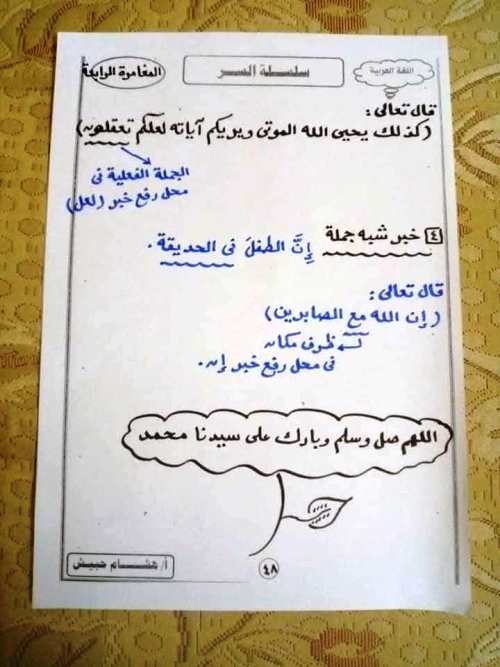 اللغة العربية
سلسلة السر
المغامرة الرابعة
قال تعالى :
(كذلك يحيى الله الموتى ويريكم آياته لعلكم تعقلون)
الجملة الفعلية فى
محل رفع خبر (لعل)
٤ خبر شبه جملة
إنَّ الطفلَ فى الحديقة .
قال تعالى :
(إن الله مع الصابرين)
ظرف مكان
فى محل رفع خبر إن.
اللهم صل وسلم وبارك على سيدنا محمد
٤٨
أ/ هشام حبيش